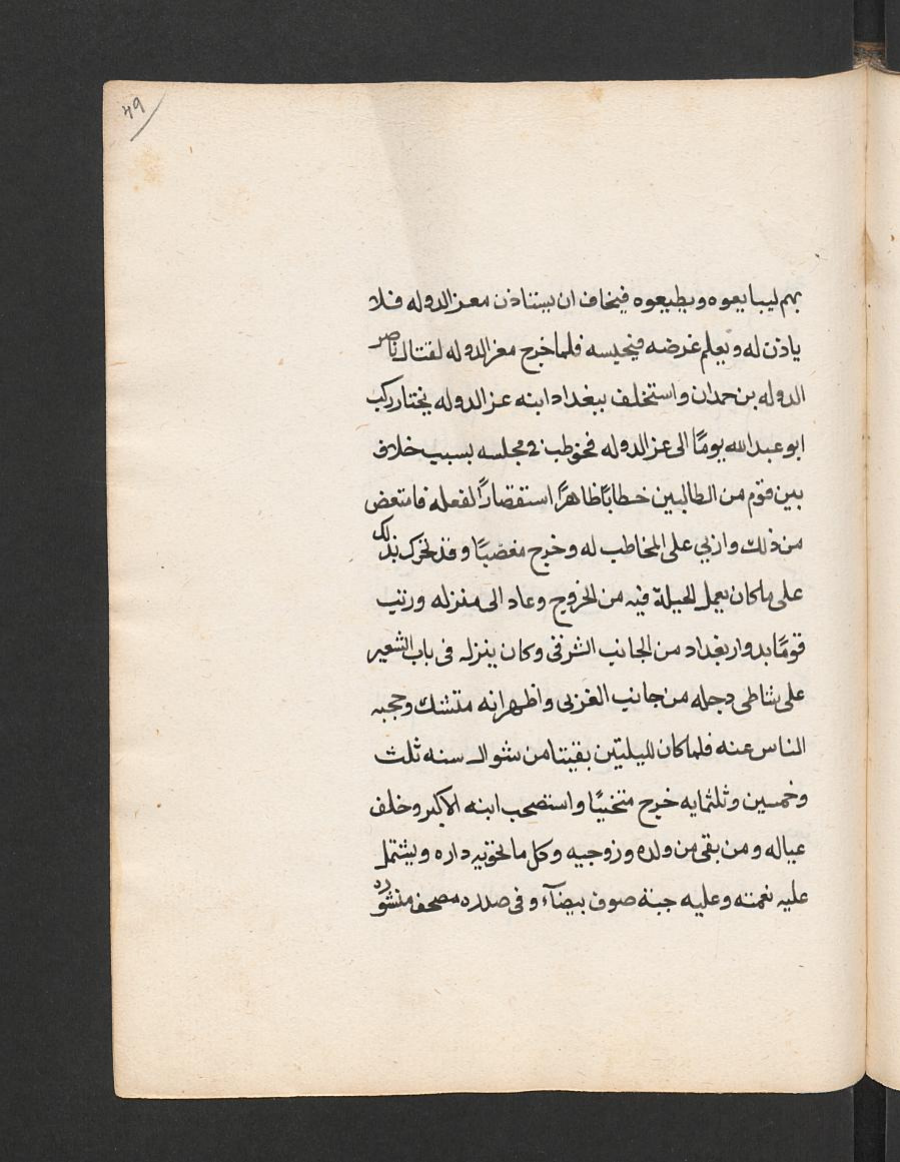 49
بهم ليبايعوه ويطيعوه فيخاف ان يستاذن معز الدوله فلا
ياذن له ويعلم غرضه فيحبسه فلما خرج معز الدوله لقتال ناصر
الدوله بن حمدان واستخلف ببغداد ابنه عز الدوله بختيار ركب
ابو عبد الله يومًا الى عز الدوله فخوطب في مجلسه بسبب خلاف
بين قوم من الطالبين خطابًا ظاهرًا استقصارًا لفعله فامتعض
من ذلك وازبى على المخاطب له وخرج مغضبًا وقد تحرك بذلك
على ما كان يعمل الحيلة فيه من الخروج وعاد الى منزله ورتب
قومًا بدواب بغداد من الجانب الشرقى وكان ينزل فى باب الشعير
على شاطى دجله من جانب الغربى واظهر انه متشك وحجب
الناس عنه فلما كان لليلتين بقيتا من شوال سنه ثلث
وخمسين وثلثمايه خرج متخبيًا واستصحب ابنه الاكبر وخلف
عياله ومن بقى من ولده وزوجيه وكل ما تحويه داره ويشتمل
عليه نعمته وعليه جبة صوف بيضآء وفى صدره مصحف منشور